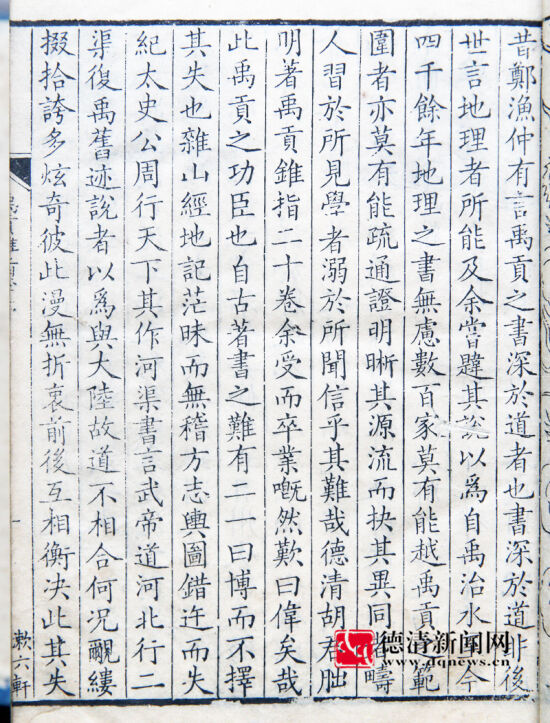 昔鄭漁仲有言禹貢之書深於道者也書深於道非後
世言地理者所能及余嘗韙其說以爲自禹治水今
四千餘年地理之書無慮數百家莫有能越禹貢範
圍者亦莫有能疏通證明晰其源流而抉其異同者疇
人習於所見學者溺於所聞信乎其難哉德清胡君朏
明著禹貢錐指二十卷余受而卒業嘅然歎曰偉矣哉
此禹貢之功臣也自古著書之難有二一曰博而不擇
其失也雜山經地記茫昧而無稽方志輿圖錯迕而失
紀太史公周行天下其作河渠書言武帝道河北行二
渠復禹舊迹說者以爲與大陸故道不相合何況覼縷
掇拾誇多炫奇彼此漫無折衷前後互相衡決此其失
一
漱六軒
德清新闻网
www.dqnews.cn